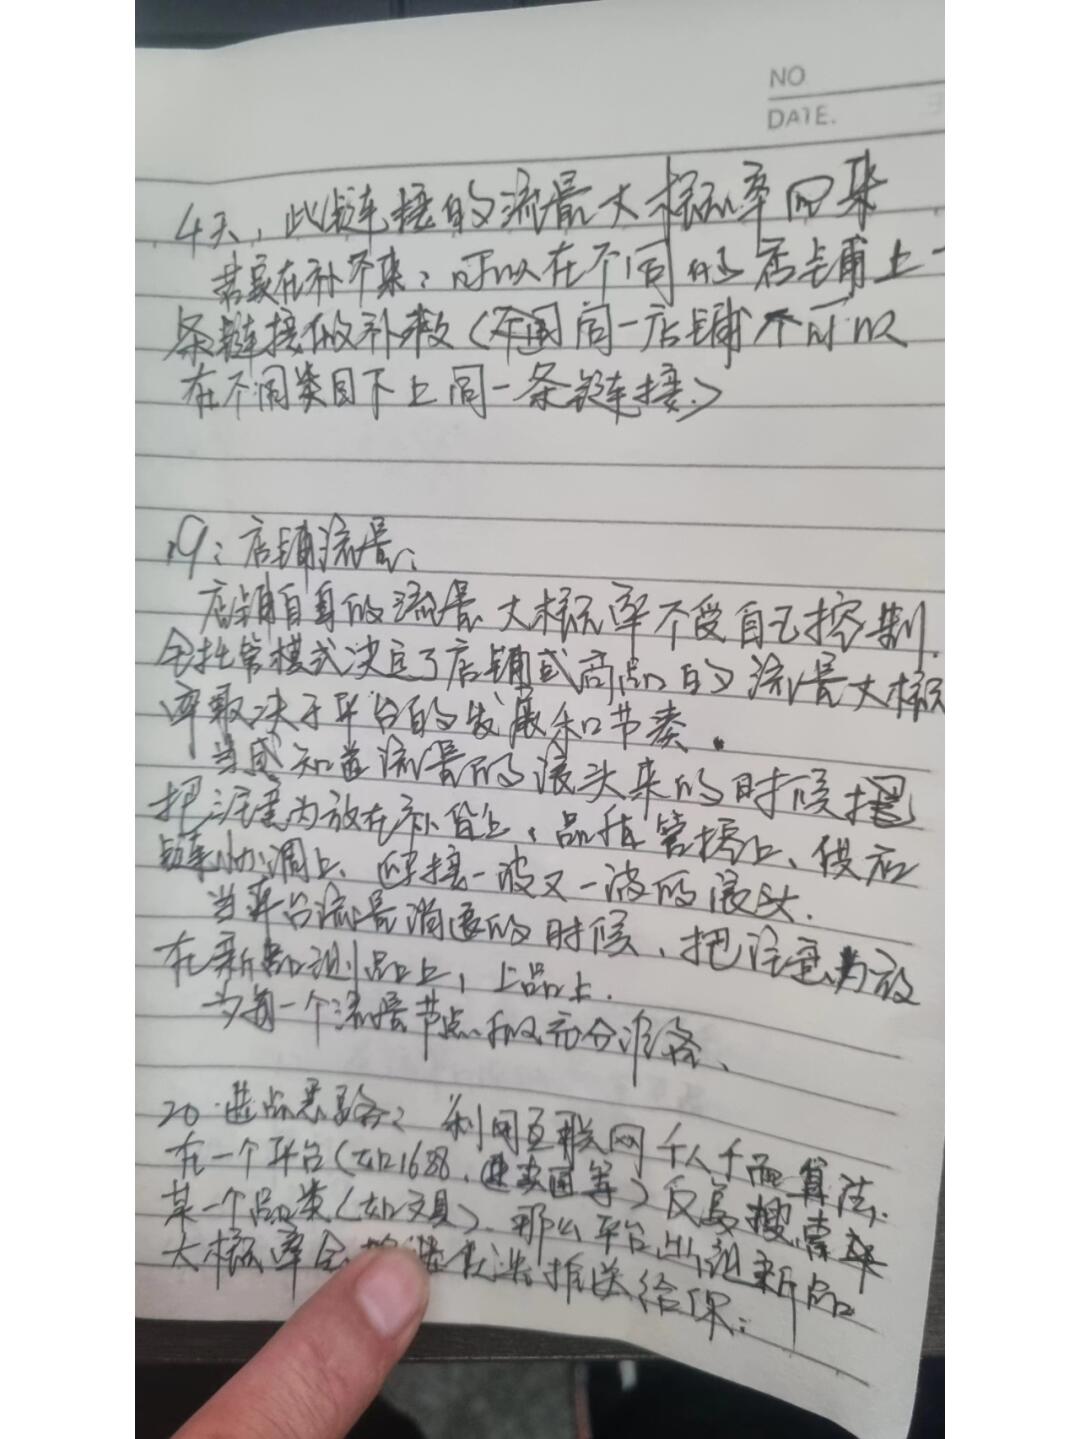 NO
DATE.
4天，此链接的流量大概率回来
若实在补不来：可以在不同的店铺上一
条链接做补救（同一店铺不可以
在不同类目下上同一条链接）
19：店铺流量：
店铺自身的流量大概率不受自己控制.
全托管模式决定了店铺或商品的流量大概
率取决于平台的发展和节奏.
当感知道流量的浪头来的时候
把注意力放在补货上、品种管控上、供应
链协调上、迎接一波又一波的浪头.
当平台流量消退的时候、把注意力放
在新品测品上，上品上.
为每一个流量节点做充分准备、
20 选品思路：利用互联网千人千面算法.
在一个平台（如1688、速卖通等）反复搜索
某一个品类（如文具）、那么平台出现新品
大概率会优先推送给你：